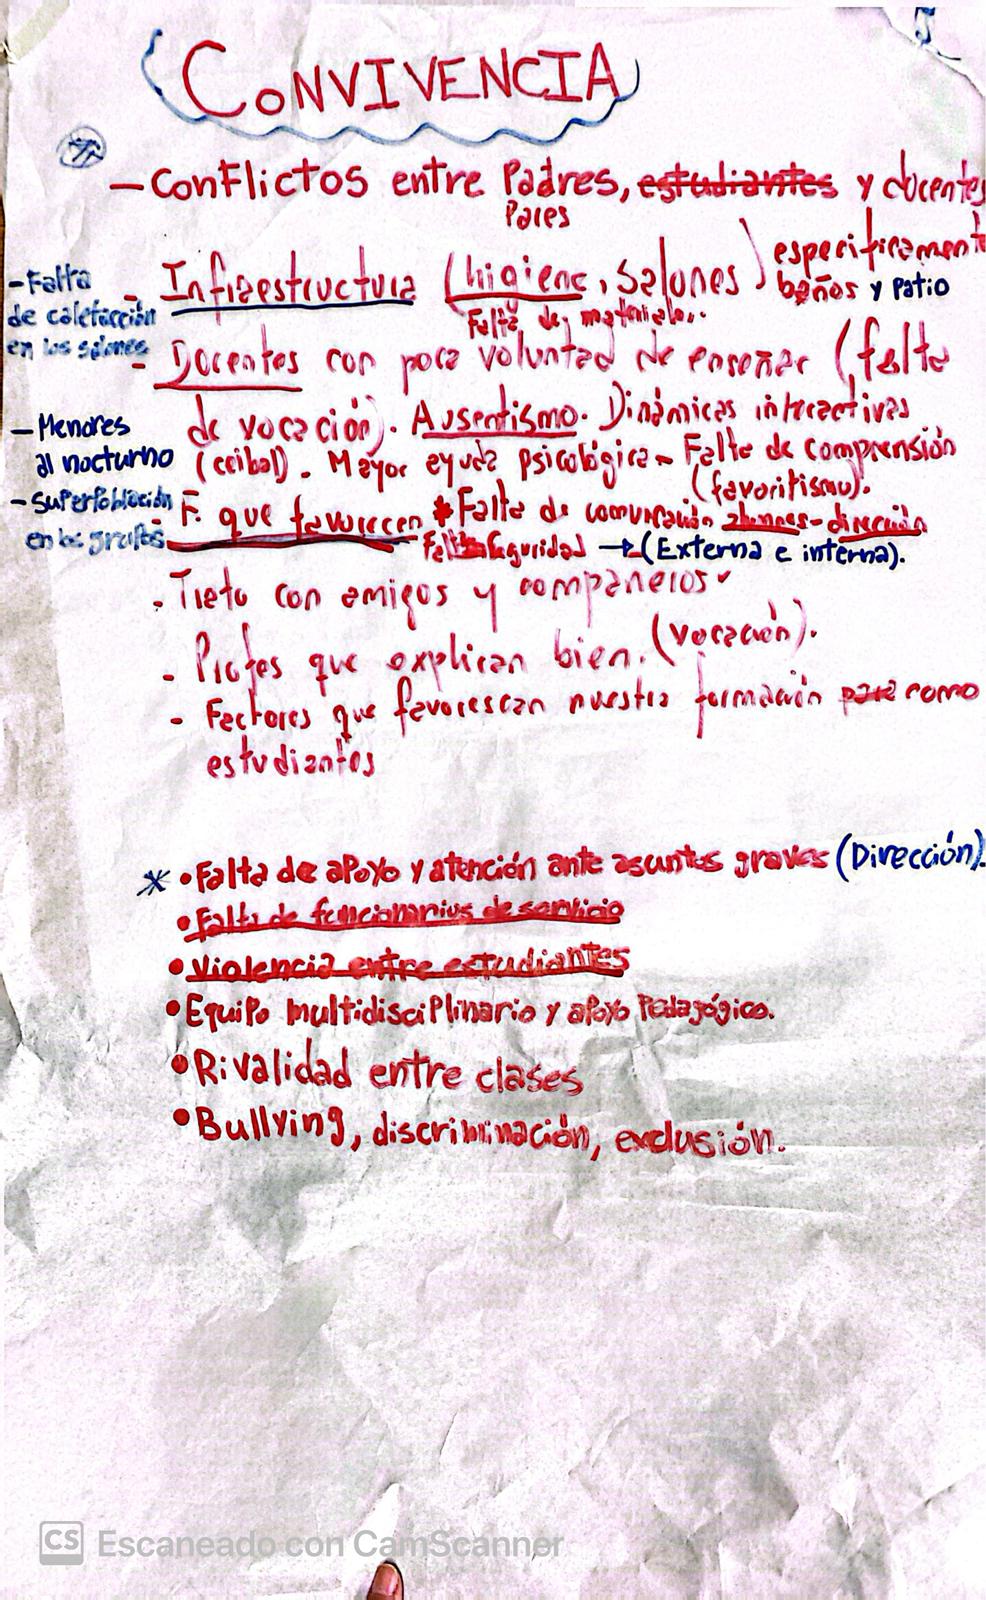 CONVIVENCIA
- Conflictos entre Padres, estudiantes y docentes
Pares
- Infraestructura (higiene, Salones) especificamente
baños y patio
Falta de materiales..
- Falta
de calefacción
en los salones
- Docentes con poca voluntad de enseñar (falta
de vocación). Ausentismo. Dinámicas interactivas
(ceibal). Mayor ayuda psicológica - Falta de comprensión
(favoritismo).
- Menores
al nocturno
- Superpoblación
en los grupos
- F. que favorecen * Falta de comunicación alumnos-dirección
Falta Seguridad → (Externa e interna).
- Trato con amigos y compañeros
- Profes que explican bien. (vocación).
- Factores que favorescan nuestra formación para como
estudiantes
* • Falta de apoyo y atención ante asuntos graves (Dirección).
• Falta de funcionarios de servicio
• Violencia entre estudiantes
• Equipo multidisciplinario y apoyo Pedagógico.
• Rivalidad entre clases
• Bullying, discriminación, exclusión.
CS Escaneado con CamScanner